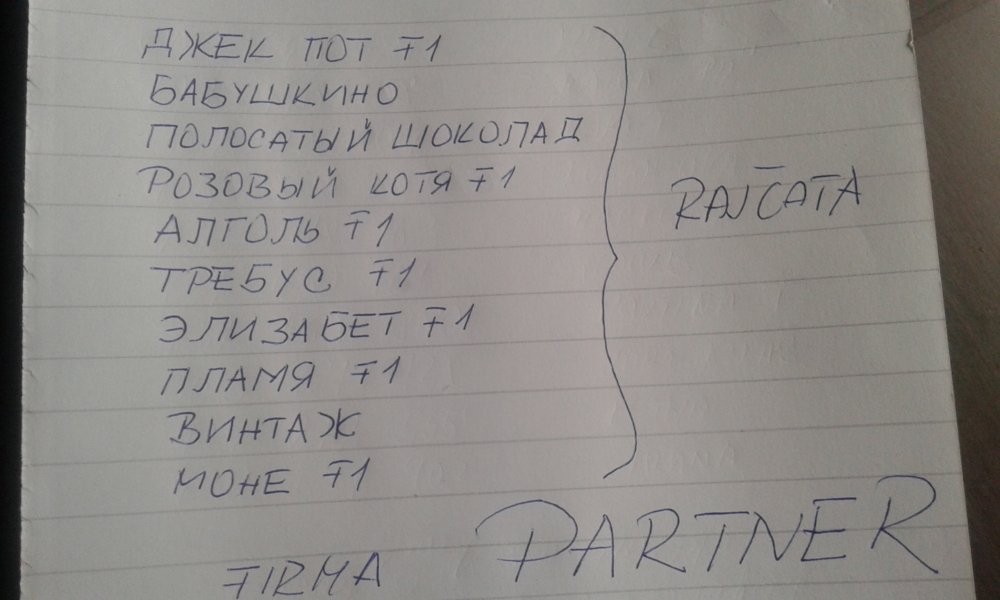 ДЖЕК ПОТ F1
БАБУШКИНО
ПОЛОСАТЫЙ ШОКОЛАД
РОЗОВЫЙ КОТЯ F1
АЛГОЛЬ F1
ТРЕБУС F1
ЭЛИЗАБЕТ F1
ПЛАМЯ F1
ВИНТАЖ
МОНЕ F1
RAJČATA
FIRMA PARTNER